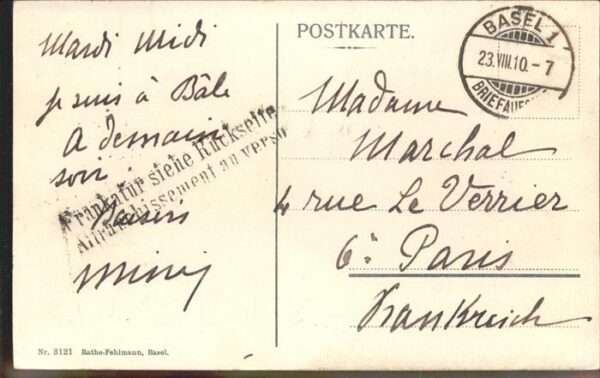 Mardi Midi
je suis à Bâle
A demain
soir.
Baisers
POSTKARTE.
BASEL 1
23.VIII.10.-7
BRIEFAUFG
Frankatur siehe Rückseite
Affranchissement au verso
Madame
Marchal
4 rue Le Verrier
6e Paris
Frankreich
Nr. 3121 Rathe-Fehlmann, Basel.